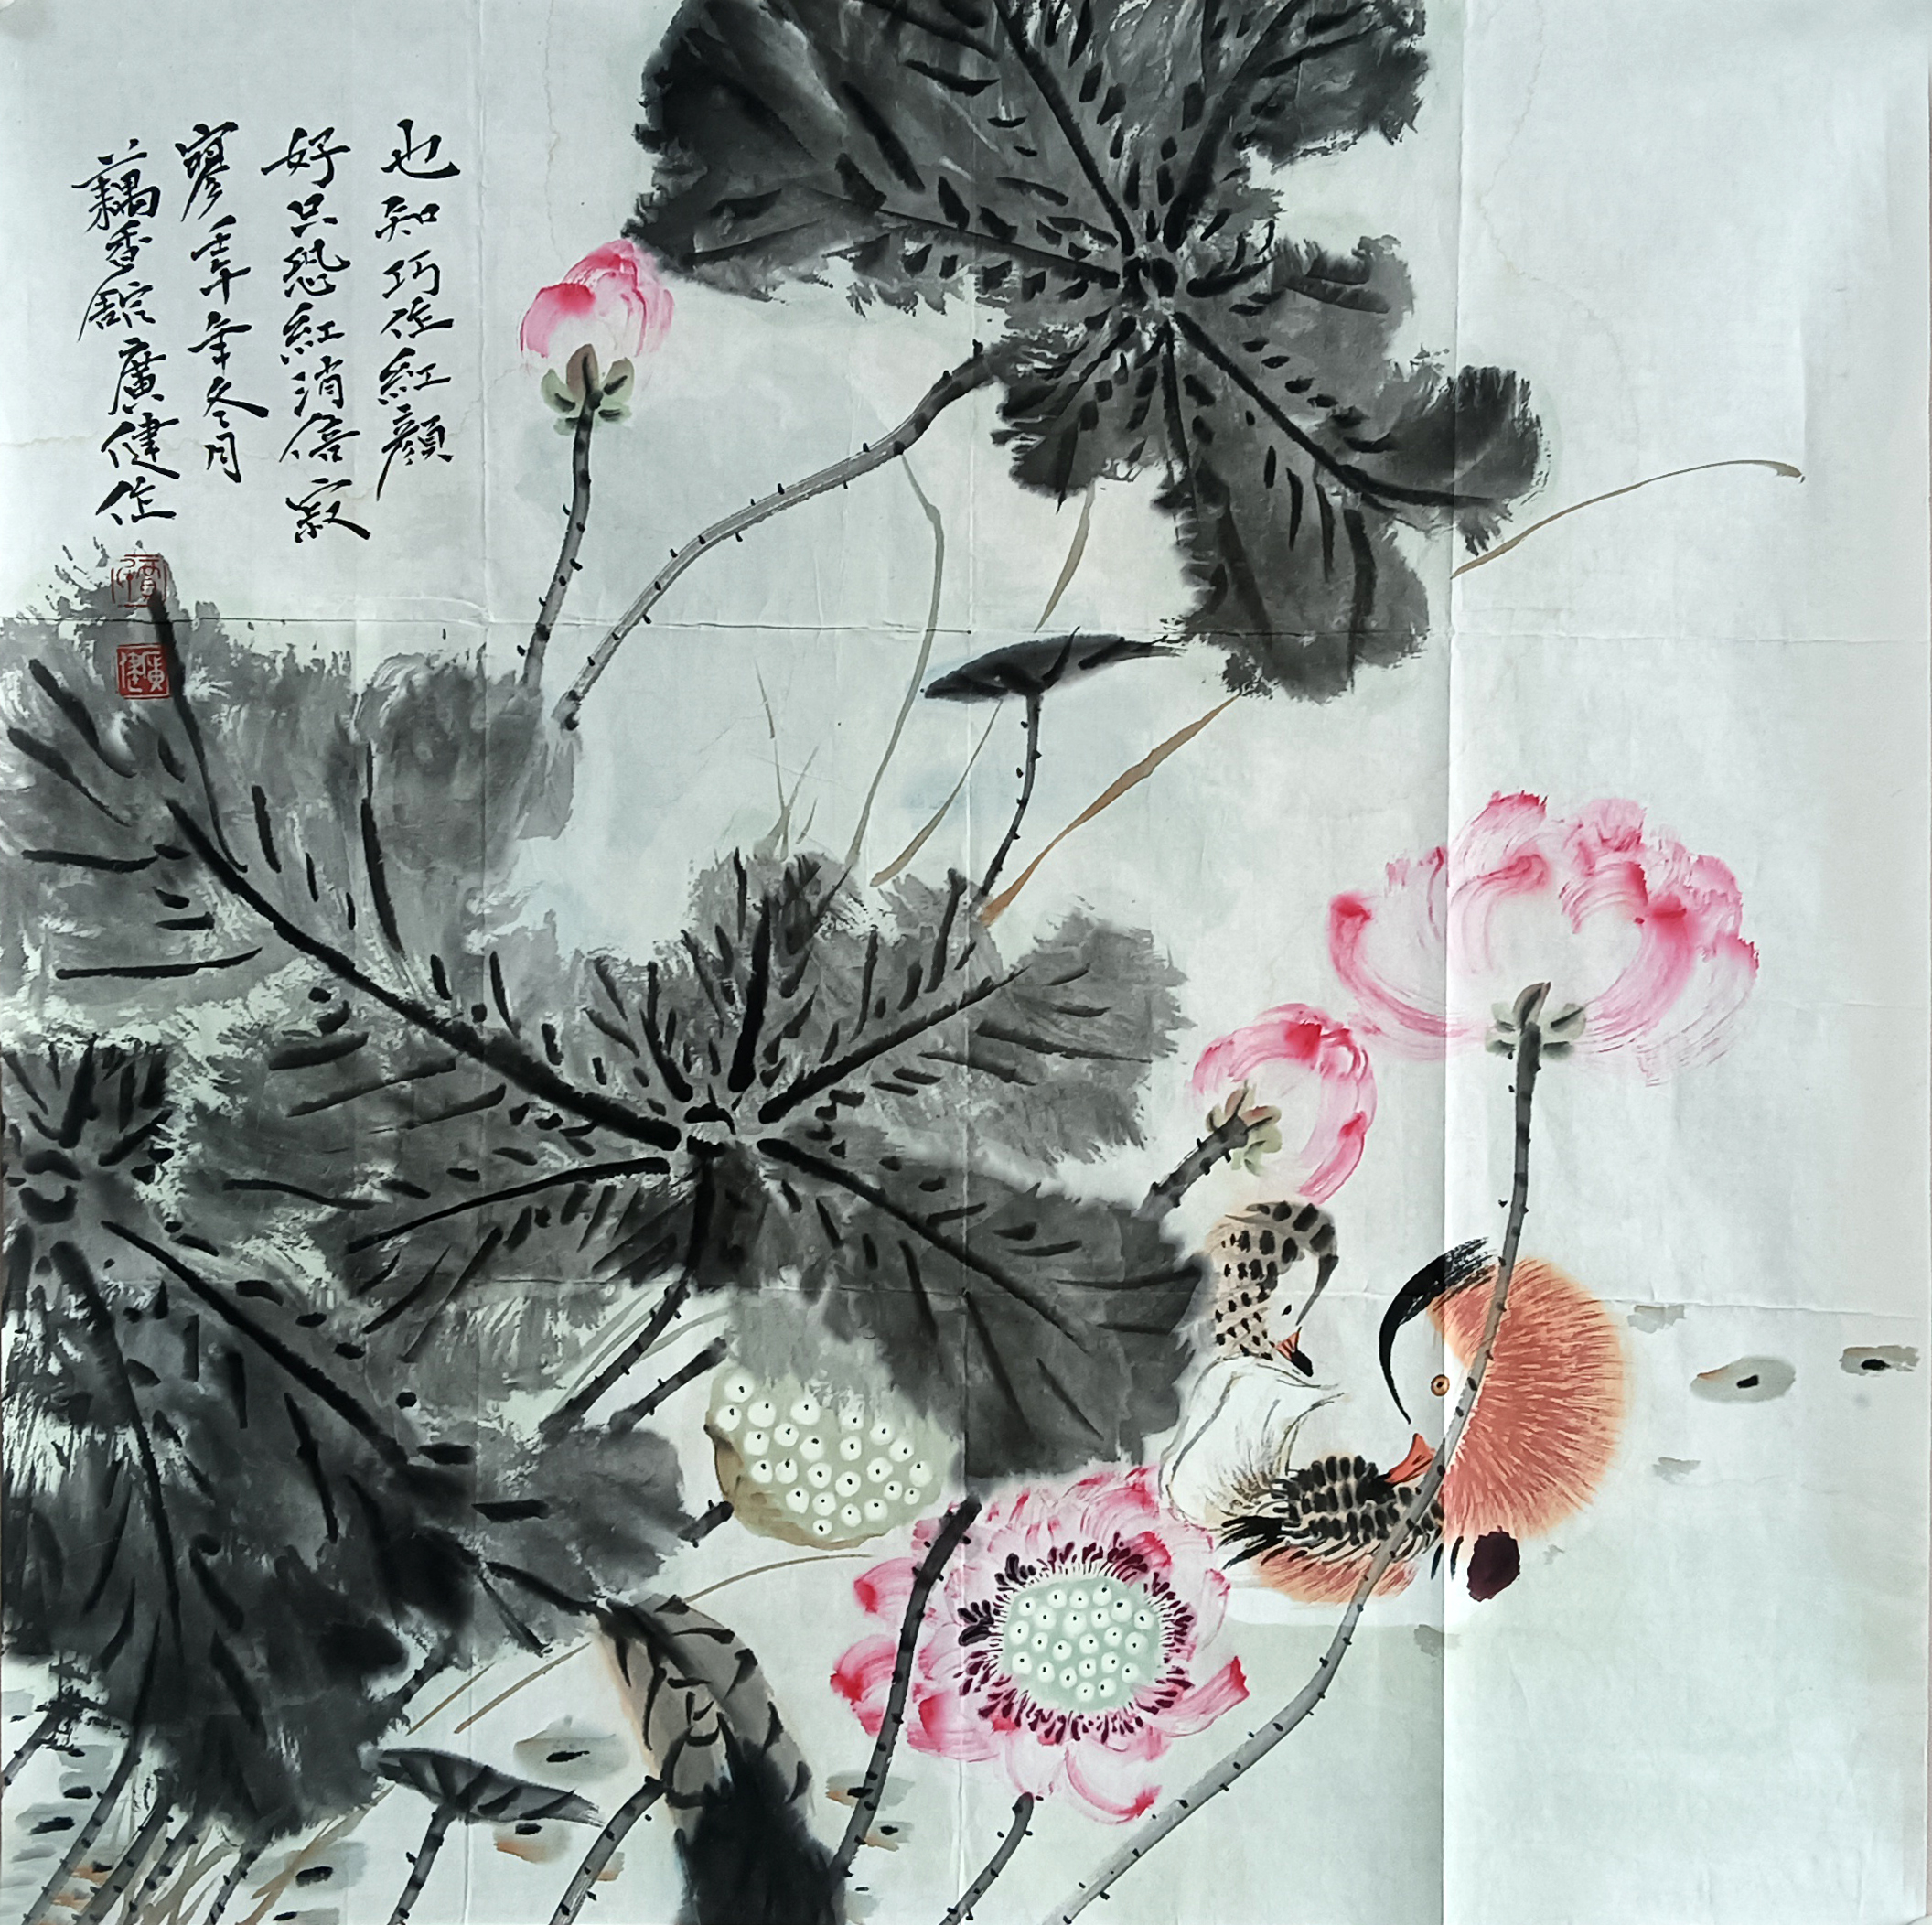 也知巧作紅顏
好只恐紅消倍寂
寥 年冬月
藕香館廣健作
廣健